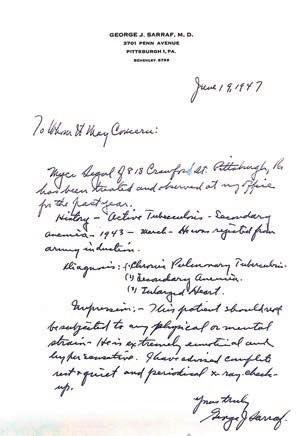 GEORGE J. SARRAF, M. D.
3701 PENN AVENUE
PITTSBURGH 1, PA.
SCHENLEY 5798
June 19, 1947
To Whom It May Concern:
Segal of 818 Crawford St. Pittsburgh, Pa
has been treated and observed at my office
for the past year.
History - Active Tuberculosis - Secondary
anemia - 1943 - March - He was rejected from
army induction.
Diagnosis: - (1) Chronic Pulmonary Tuberculosis.
(2) Secondary Anemia.
(3) Enlarged Heart.
Impression: - This patient should not
be subjected to any physical or mental
strain - He is extremely emotional and
hypersensitive. I have advised complete
rest & quiet and periodical x-ray check-
up.
Yours truly
George J Sarraf.